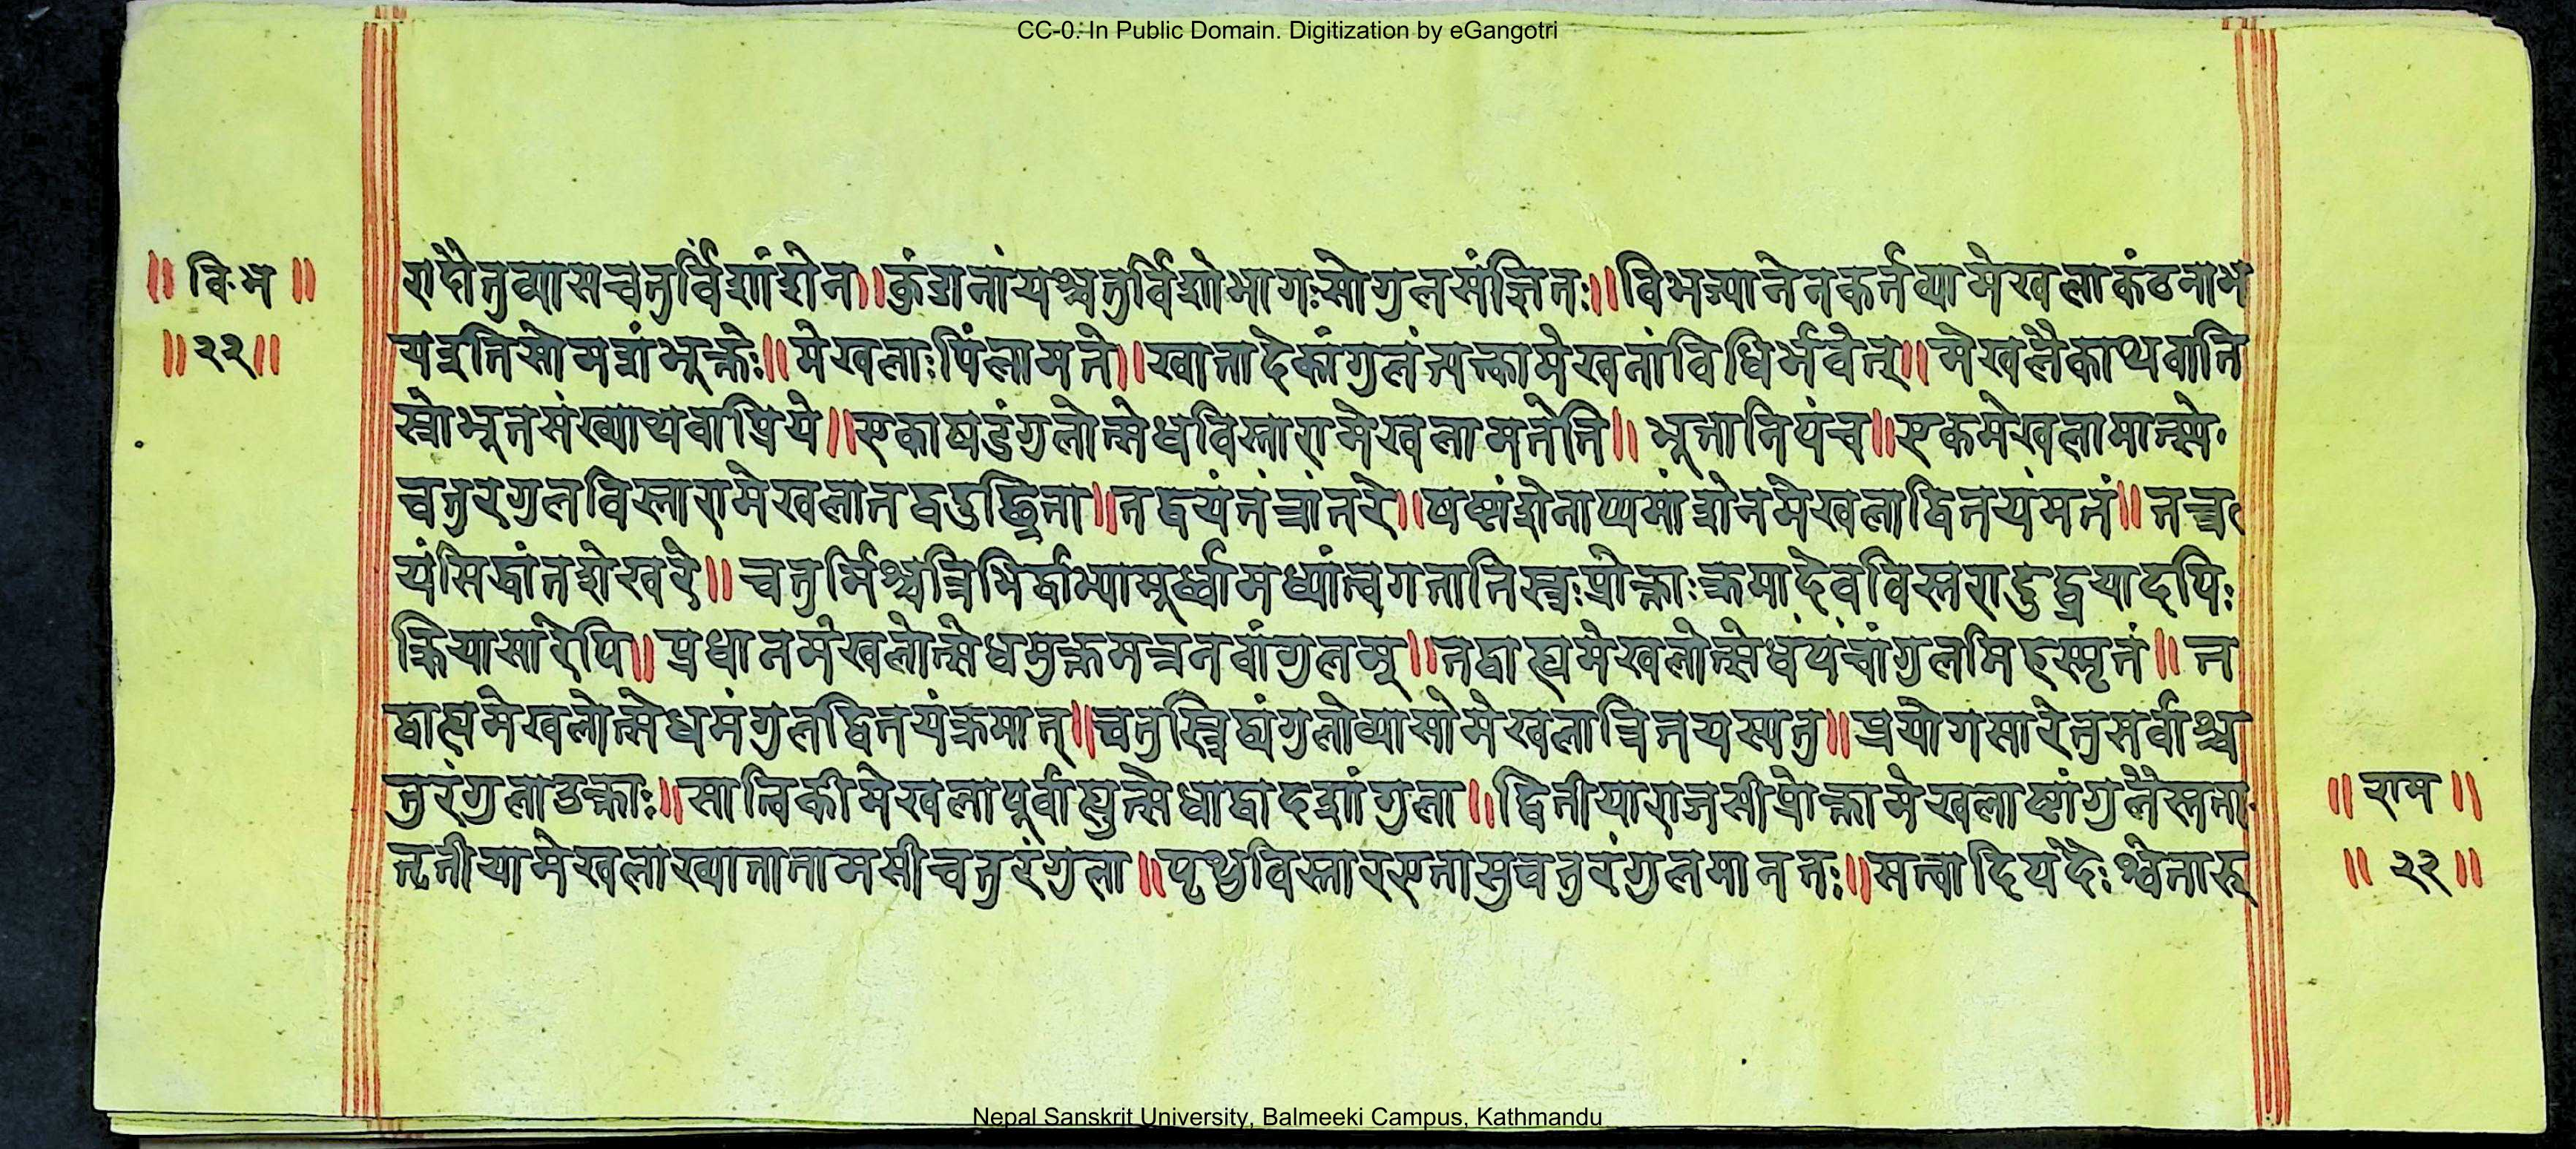 CC-0. In Public Domain. Digitization by eGangotri
॥ वि॰ भ ॥
॥ २२ ॥
रादौतुव्यासचतुर्विंशांशेन॥ कुंडानांयश्चतुर्विंशोभागःसोगुलसंज्ञितः॥ विभज्यानेनकर्तव्यामेखलाकंठनाभ
यइतिसोमशंभूक्तेः॥ मेखलाःपिंलामते॥ खातादेकांगुलंत्यक्त्वामेखलनांविधिर्भवेत्॥ मेखलैकाथवाति
स्रोभूतसंख्याथवाप्रिये॥ एकाषडंगुलोत्सेधविस्तारामेखलामतेति॥ भूतानिपंच॥ एकमेखलामात्स्ये॰
चतुरगुलविस्तारामेखलातद्वदुछ्रिता॥ तद्वयंतंत्रांतरे॥ षष्ठांशेनाष्टमांशेनमेखलाद्वितयंमतं॥ तत्त्र
यंसिद्धांतशेखरे॥ चतुर्भिश्चत्रिभिर्द्वाभ्यामूर्ध्वामध्यांत्वगतातिस्त्रःप्रोक्ताःक्रमादेवविस्तरादुद्ध्रयादपिः
क्रियासारेपि॥ प्रधानमेखलोत्सेधमुक्तमत्रनवांगुलम्॥ तद्बाह्यमेखलोत्सेधंपंचांगुलमिहस्मृतं॥ त
द्बाह्यमेखलोत्सेधमंगुलद्वितयंक्रमात्॥ चतुस्त्रिद्व्यंगुलोव्यासोमेखलात्रितयस्यतु॥ प्रयोगसारेतुसर्वाश्च
तुरंगुलाउक्ताः॥ सात्विकीमेखलापूर्वाह्युत्सेधाद्वादशांगुला॥ द्वितीयाराजसीप्रोक्तामेखलाष्टांगुलैस्तता॰
तृतीयामेखलाख्यातातामसीचतुरंगुला॥ पृथुविस्तारएतासुचतुरंगुलमानतः॥ सत्वादिपदैःश्वेतारू
॥ राम ॥
॥ २२ ॥
Nepal Sanskrit University, Balmeeki Campus, Kathmandu